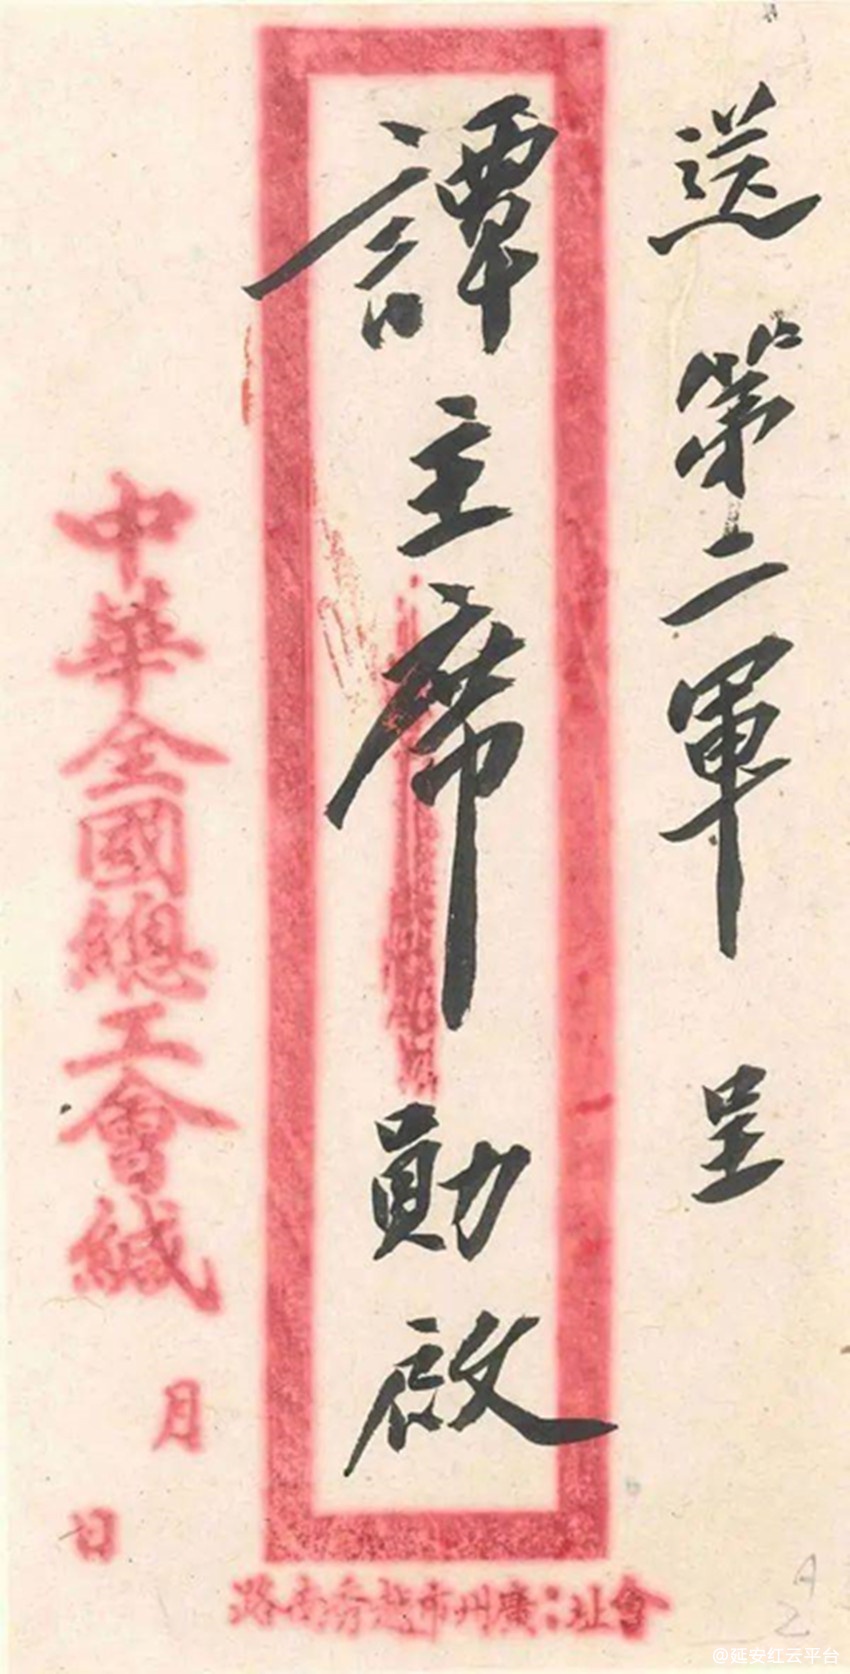 送第二軍 呈
譚主席勛啟
中華全國總工會緘
月
日
會址:廣州市越秀南路
A
乙
@延安红云平台